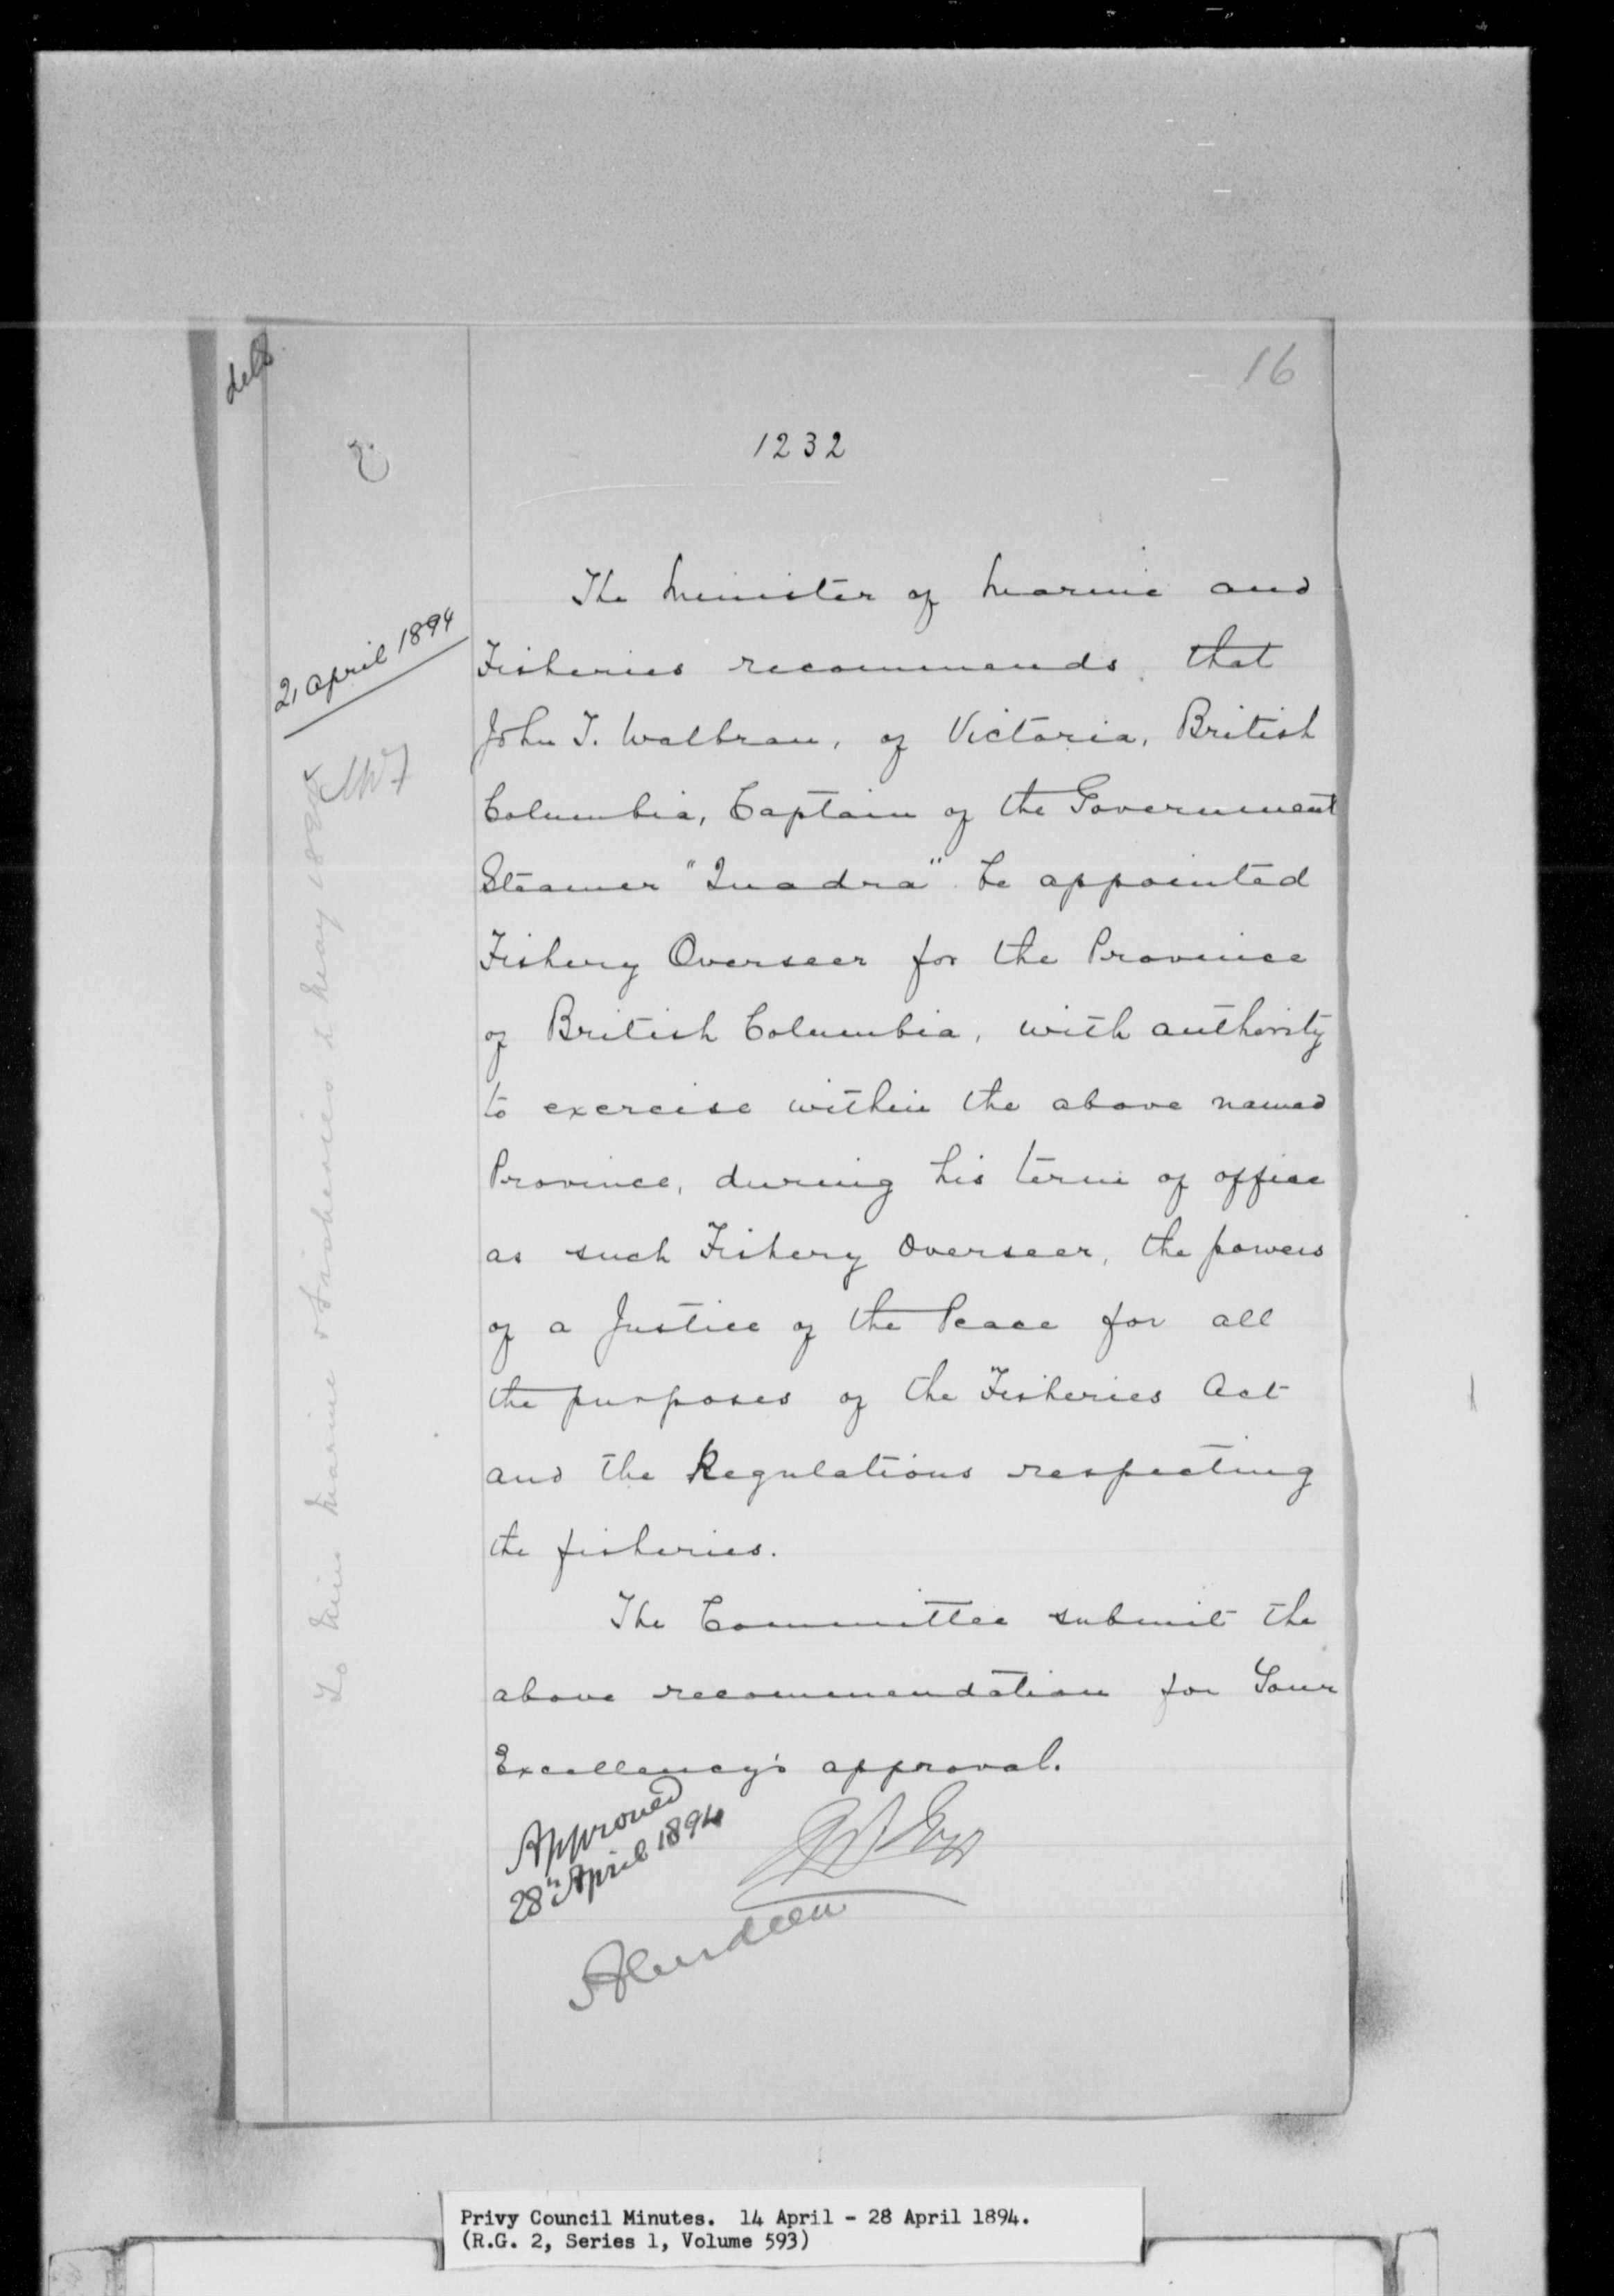 16
1232
2, April 1894
The Minister of Marine and
Fisheries recommends that
John T. Walbran, of Victoria, British
Columbia, Captain of the Government
Steamer "Quadra" be appointed
Fishery Overseer for the Province
of British Columbia, with authority
to exercise within the above named
Province, during his term of office
as such Fishery Overseer, the powers
of a Justice of the Peace for all
the purposes of the Fisheries Act
and the Regulations respecting
the fisheries.
The Committee submit the
above recommendation for Your
Excellency's approval.
Approved
28th April 1894
Aberdeen
To Min Marine & Fisheries 2 May
Privy Council Minutes. 14 April - 28 April 1894.
(R.G. 2, Series 1, Volume 593)